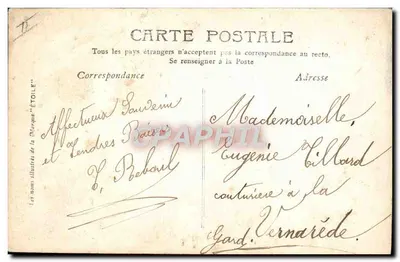 75
CARTE POSTALE
Tous les pays étrangers n'acceptent pas la correspondance au recto.
Se renseigner à la Poste
Correspondance
Adresse
Affectueux Souvenir
et Tendres Baisers
V. Reboul
Mademoiselle,
Eugénie Tillard
couturière à la
Vernarède.
Gard.
Les noms illustrés de la Marque "ÉTOILE"
CPAPHIL.COM